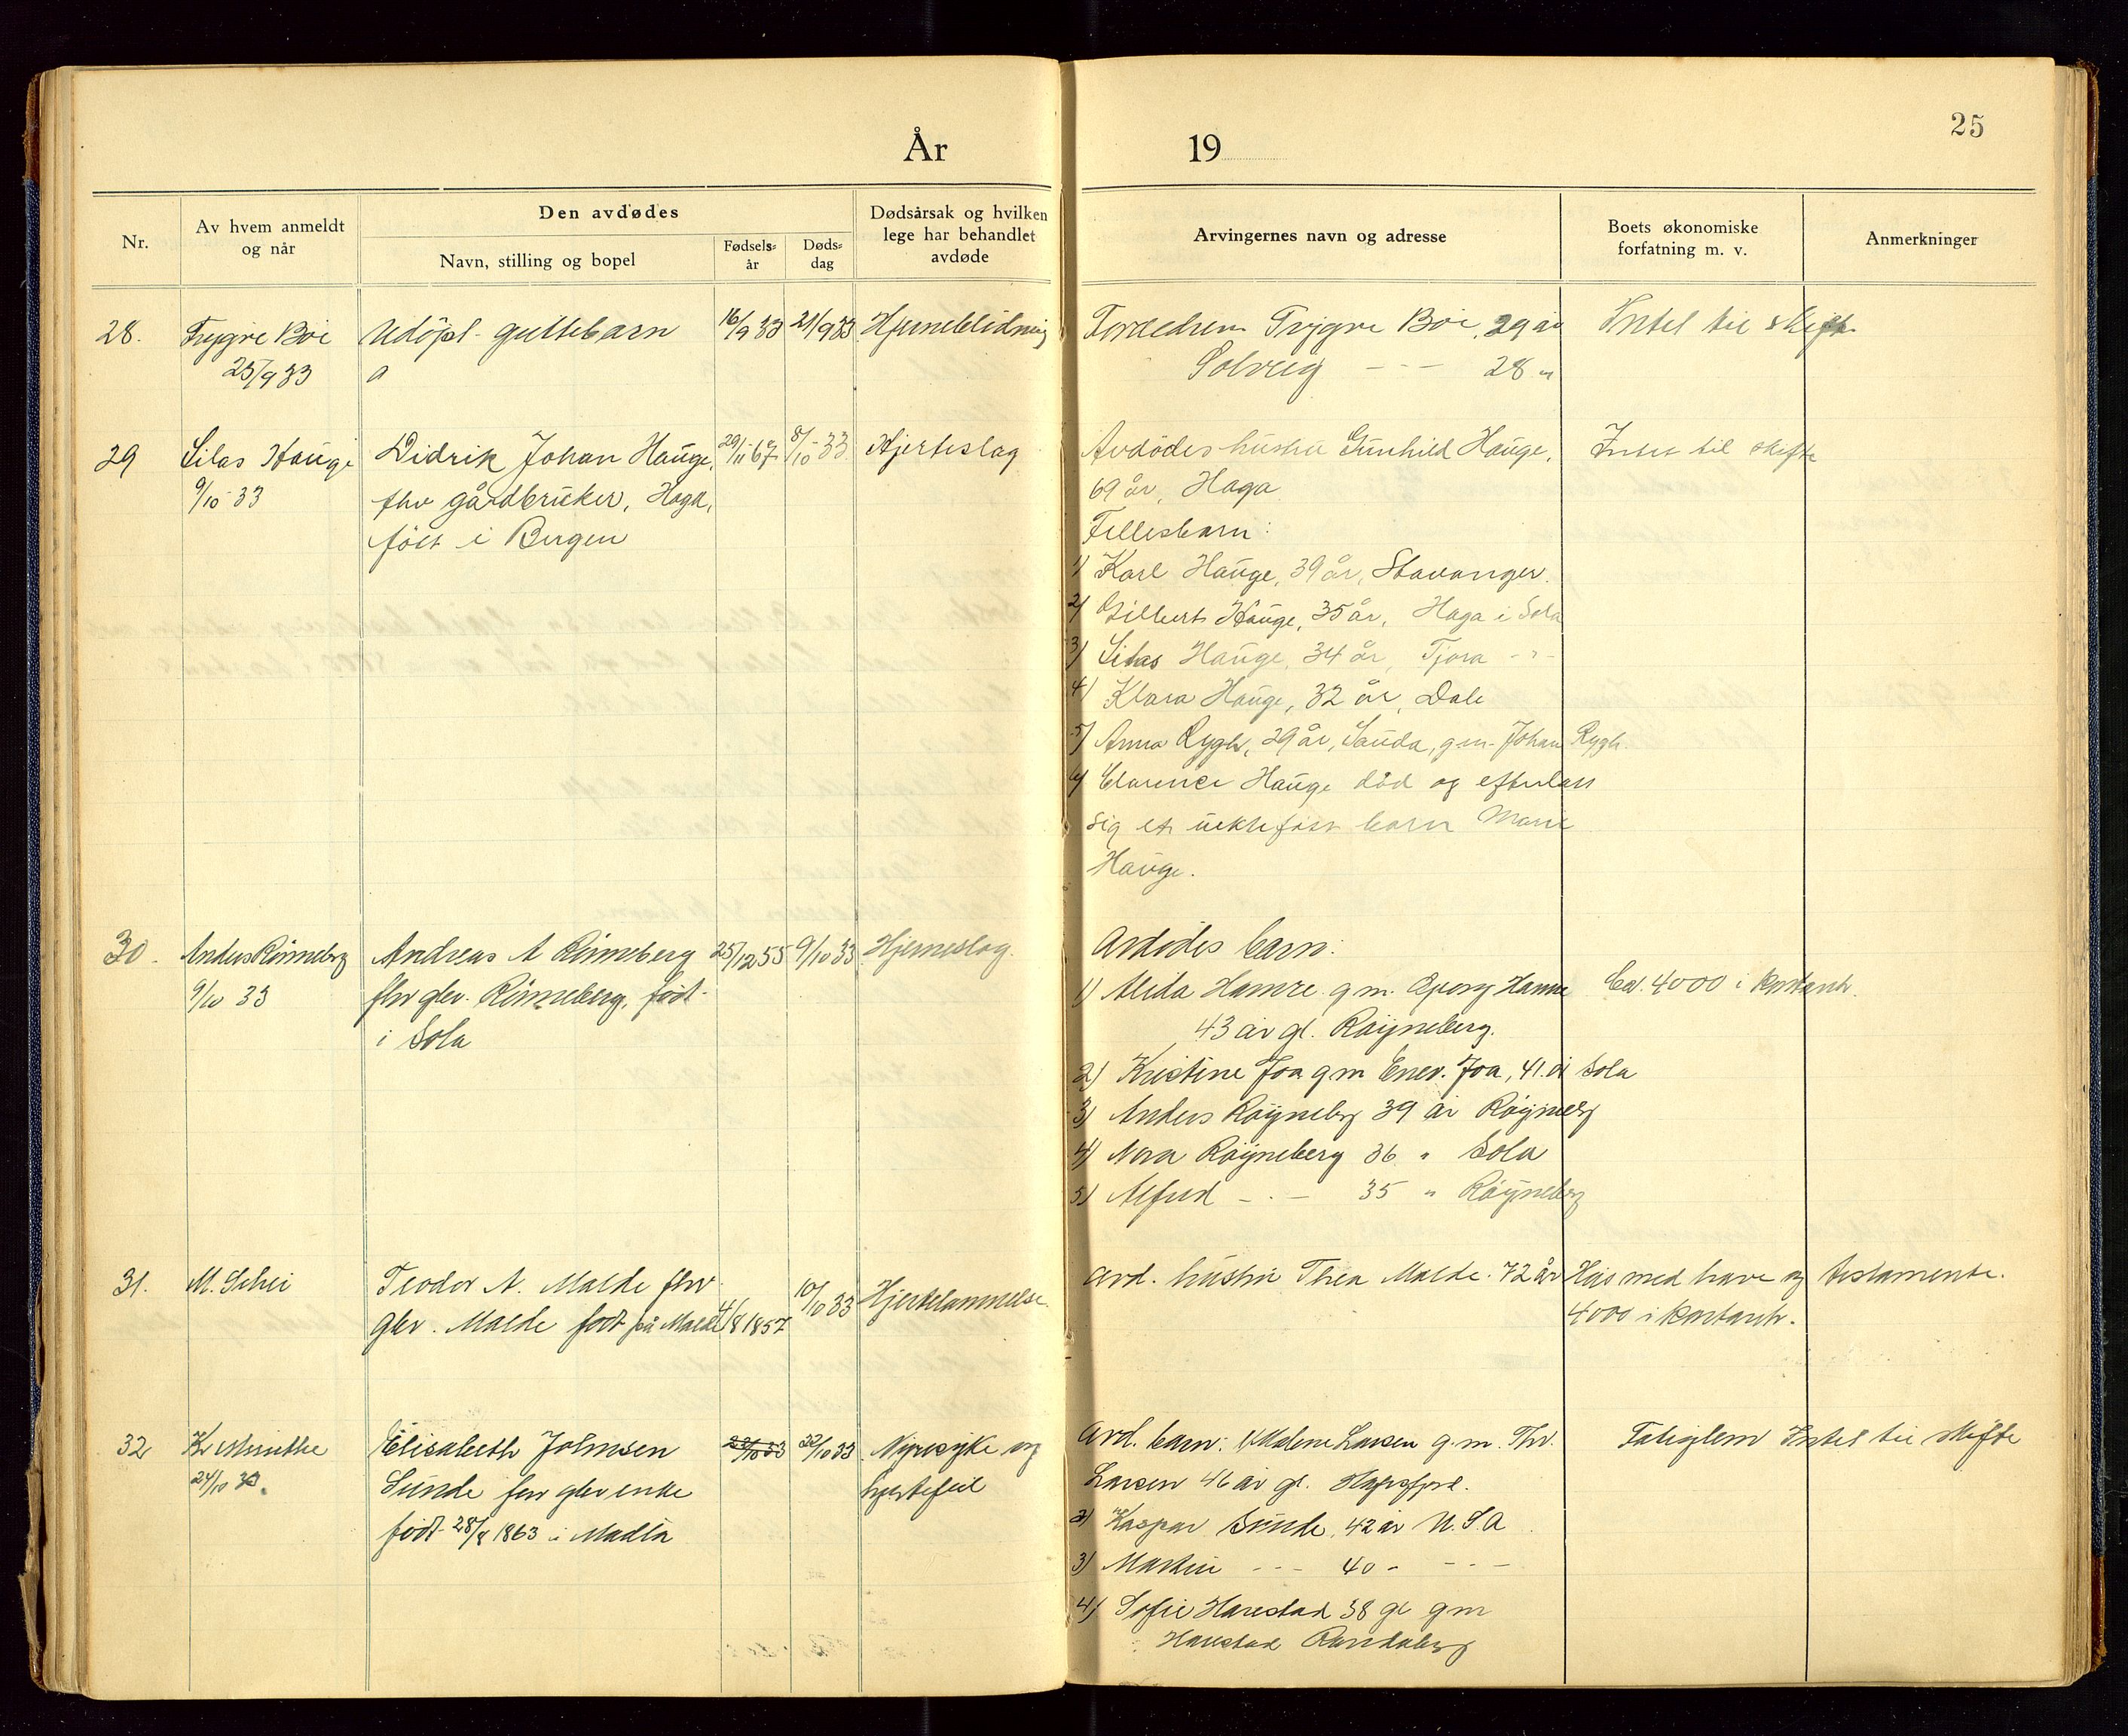 25
År 19
Nr.
Av hvem anmeldt
og når
Den avdødes
Navn, stilling og bopel
Fødsels-
år
Døds-
dag
Dødsårsak og hvilken
lege har behandlet
avdøde
Arvingernes navn og adresse
Boets økonomiske
forfatning m. v.
Anmerkninger
28.
Trygve Böe
25/9 33
Udöpt guttebarn
16/9 33
21/9 33
Hjerneblödning
Foreldren Trygve Böe, 29 år
Solveig - - - 28 "
Intet til skifte
29
Silas Hauge
9/10-33
Didrik Johan Hauge,
fhv gårdbruker, Haga,
föit i Bergen
29/11-67
8/10-33
Hjerteslag
Avdödes hustru Gunhild Hauge,
69 år, Haga
Fellesbarn:
1) Karl Hauge, 39 år, Stavanger.
2) Gilbert Hauge, 35 år, Haga i Sola
3) Silas Hauge, 34 år, Tjora - " -
4) Klara Hauge, 32 år, Dale
5) Anna Rygh, 29 år, Sauda, g.m. Johan Rygh.
6) Clarence Hauge död og efterlatt
sig et uektefött barn Marie
Hauge.
Intet til skifte
30.
Anders Rönneberg
9/10 33
Andreas A Rönneberg
fhv gbr. Rönneberg, födt
i Sola
25/12 55
9/10 33
Hjerneslag.
Avdödes barn:
1) Alida Hamre g.m. Hamre
43 år gl. Röyneberg.
2) Kristine Joa g m Enev. Joa, 41 år Sola
3) Anders Röyneberg 39 år Röyneberg
4) Nora Röyneberg 36 " Sola
5) Alfred - . - 35 " Röyneberg
Ca. 4000 i kontanter.
31.
M. Schei
Teodor A. Malde fhv
gbr. Malde födt på Malde
4/8 1857
10/10 33
Hjertelammelse.
Avd. hustru Thea Malde. 72 år
Hus med have og testamente.
4000 i kontanter.
32
Kr Munthe
24/10 33.
Elisabeth Johnsen
Sunde fhv gbr enke
födt 28/8 1863 i Madla
22/10 33
22/10 33
Nyresyke og
hjertefeil
Avd. barn: 1) Malene Larsen g.m. Thv.
Larsen 46 år gl. Hafrsfjord.
2) Kaspar Sunde, 42 år U.S.A.
3) Martin - - - 40 - - - -
4) Sofie Harestad 38 gl g m
Harestad Randaberg
Intet til skifte